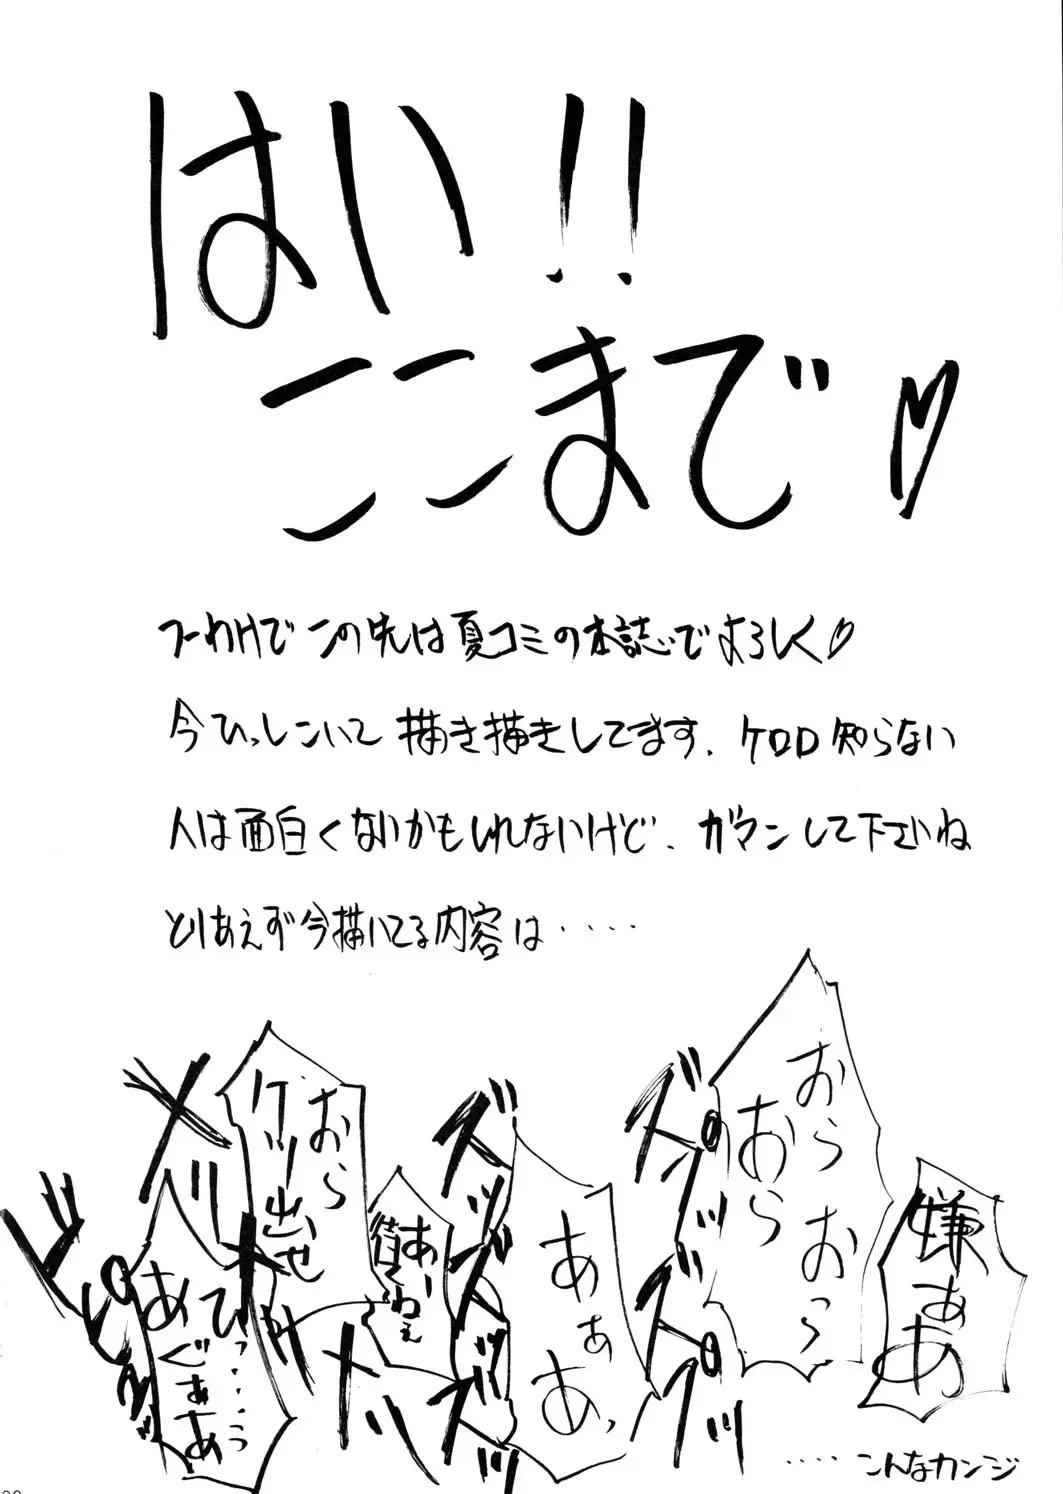 はい!!
ここまで♡
つーわけでこの先は夏コミの本誌でよろしく♡
今ひっしこいて描き描きしてます. ケロロ知らない
人は面白くないかもしれないけど. ガマンして下さいね
とりあえず今描いてる内容は‥‥
嫌ぁあ
おらおら
おらおらっ
ズプッ
ズプッ
あぁあっ
ズッズッズッ
おらケツ出せ
ひっ‥‥うっ
あぐぁあ
‥‥こんなカンジ